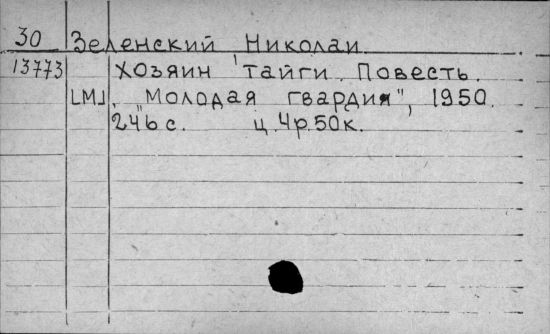 30 Зеленский Николай
13773 Хозяин тайги. Повесть.
[М], "Молодая гвардия", 1950.
246 с. ц. 4р. 50к.